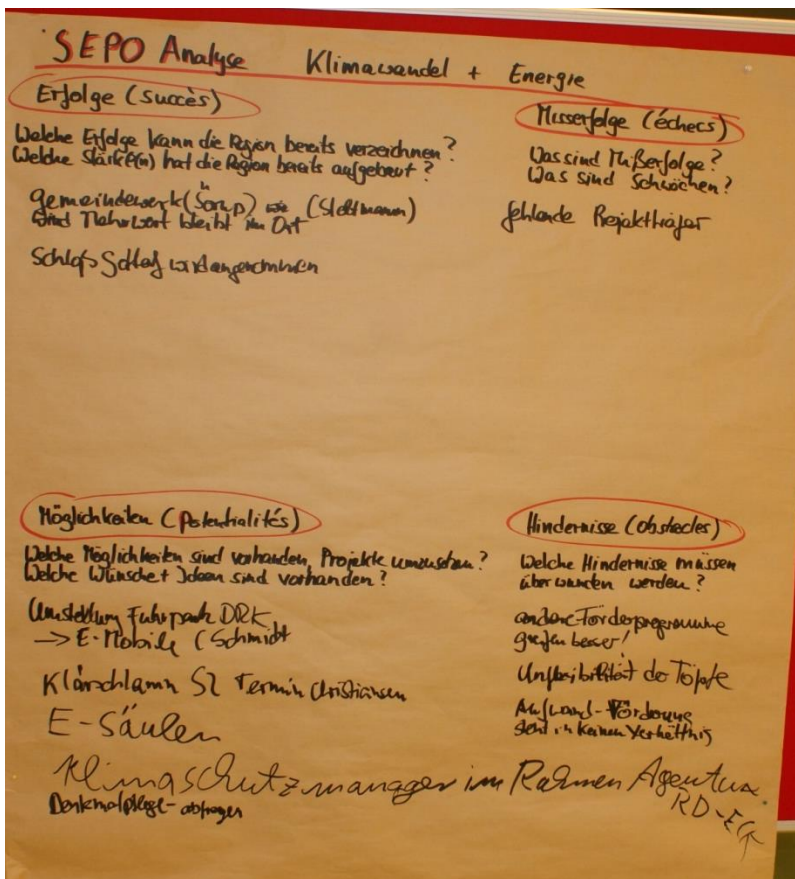 SEPO Analyse Klimawandel + Energie
Erfolge (succès)
Welche Erfolge kann die Region bereits verzeichnen?
Welche Stärke(n) hat die Region bereits aufgebaut?
Gemeindewerk (Sörup) wie
bleibt im Ort
Schloß wird angenommen
Misserfolge (échecs)
Was sind Mißerfolge?
Was sind Schwächen?
fehlende Projektträger
Möglichkeiten (Potentialités)
Welche Möglichkeiten sind vorhanden, Projekte umzusetzen?
Welche Wünsche + Ideen sind vorhanden?
Umstellung Fuhrpark DRK
→ E-Mobile (Schmidt
Klärschlamm SL Termin Christiansen
E-Säulen
Klimaschutzmanager im Rahmen Agentur
RD-ECK
Denkmalpflege - abfragen
Hindernisse (obstacles)
Welche Hindernisse müssen
überwunden werden?
andere Förderprogramme
greifen besser!
Unflexibilität der Töpfe
Aufwand-Förderung
steht in keinem Verhältnis